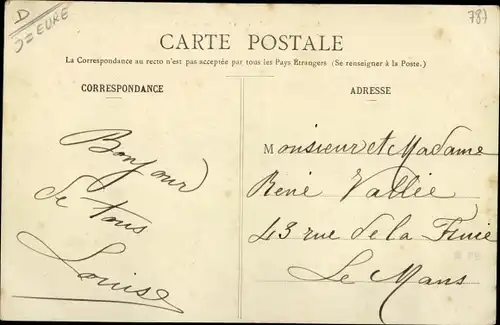 D
EURE
787
CARTE POSTALE
La Correspondance au recto n'est pas acceptée par tous les Pays Étrangers (Se renseigner à la Poste.)
CORRESPONDANCE
ADRESSE
Bonjour
de tous
Louise
Monsieur et Madame
René Vallée
43 rue de la
Le Mans